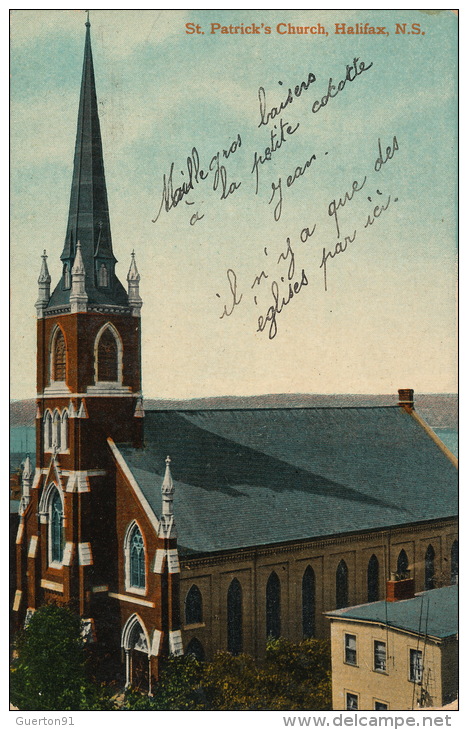 St. Patrick's Church, Halifax, N.S.
Maille gros baisers
à la petite cocotte
Jean.
il n'y a que des
églises par ici.
Guerton91